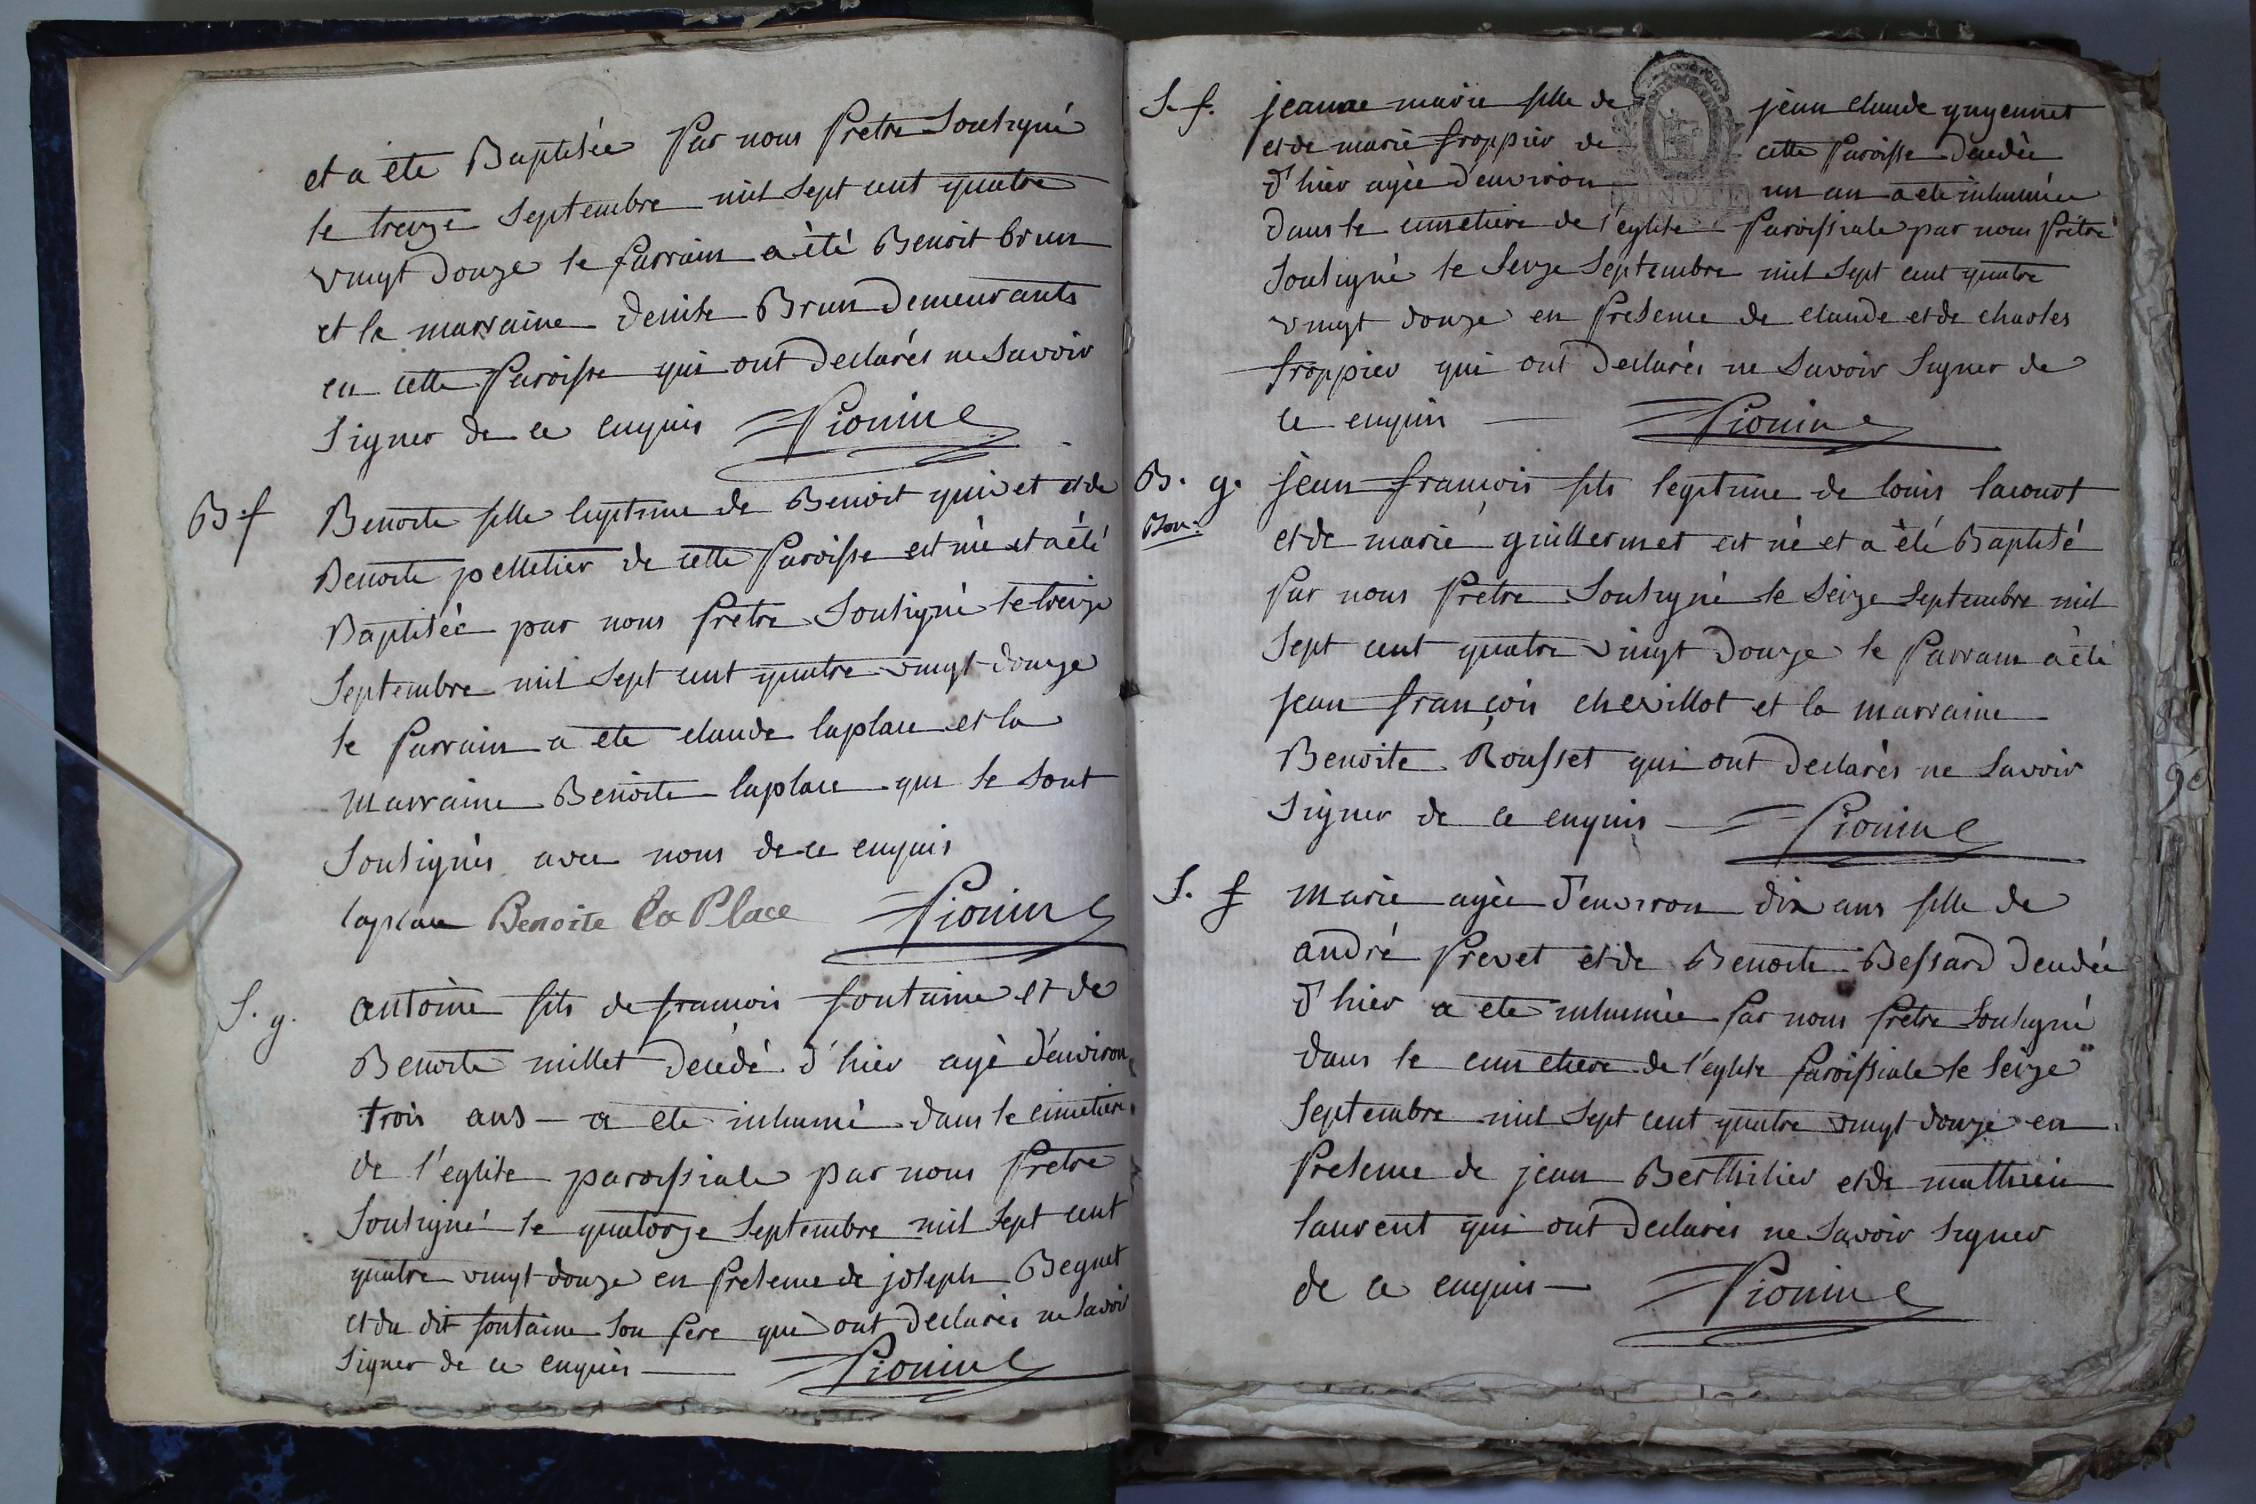 et a ete Baptisée Par nous Pretre Soussigné
le treize Septembre mil sept cent quatre
vingt douze le parrain a été Benoit brun
et la marraine denise Brun demeurants
en cette Paroisse qui ont declarés ne savoir
signer de ce enquis Pionin
B. f
Benoite fille legitime de Benoit quivet et de
Benoite pelletier de cette Paroisse est née et a été
Baptisée par nous Pretre Soussigné le treize
Septembre mil sept cent quatre vingt douze
le Parrain a ete claude laplace et la
marraine Benoite laplace qui se sont
Soussignés avec nous de ce enquis
laplace Benoite la Place Pionin
S. g.
antoine fils de francois fontaine et de
Benoite millet decédé d'hier agé d'environ
trois ans - a ete inhumé dans le cimetiere
de l'eglise paroissiale par nous Pretre
Soussigné le quatorze Septembre mil sept cent
quatre vingt douze en presence de joseph Begnet
et du dit fontaine son pere qui ont declarés ne savoir
signer de ce enquis Pionin
S. f.
jeanne marie fille de jean claude guyennet
et de marie froppier de cette Paroisse decedée
d'hier agée d'environ un an a ete inhumée
dans le cimetiere de l'eglise Paroissiale par nous Prêtre
Soussigné le Seize Septembre mil sept cent quatre
vingt douze en Presence de claude et de charles
froppier qui ont declarés ne savoir signer de
ce enquis Pionin
B. g.
Bon:
jean françois fils legitime de louis lacourt
et de marie guillermet est né et a été Baptisé
Par nous Prêtre Soussigné le Seize Septembre mil
sept cent quatre vingt douze le Parrain a été
jean françois chevillot et la marraine
Benoite Rousset qui ont declarés ne savoir
signer de ce enquis Pionin
90
S. f
marie agée d'environ dix ans fille de
andré Prevet et de Benoite Bessard decedée
d'hier a ete inhumée Par nous Pretre Soussigné
dans le cimetiere de l'eglise paroissiale le Seize
Septembre mil sept cent quatre vingt douze en
Presence de jean Berthilier et de mathieu
laurent qui ont declarés ne savoir signer
de ce enquis Pionin